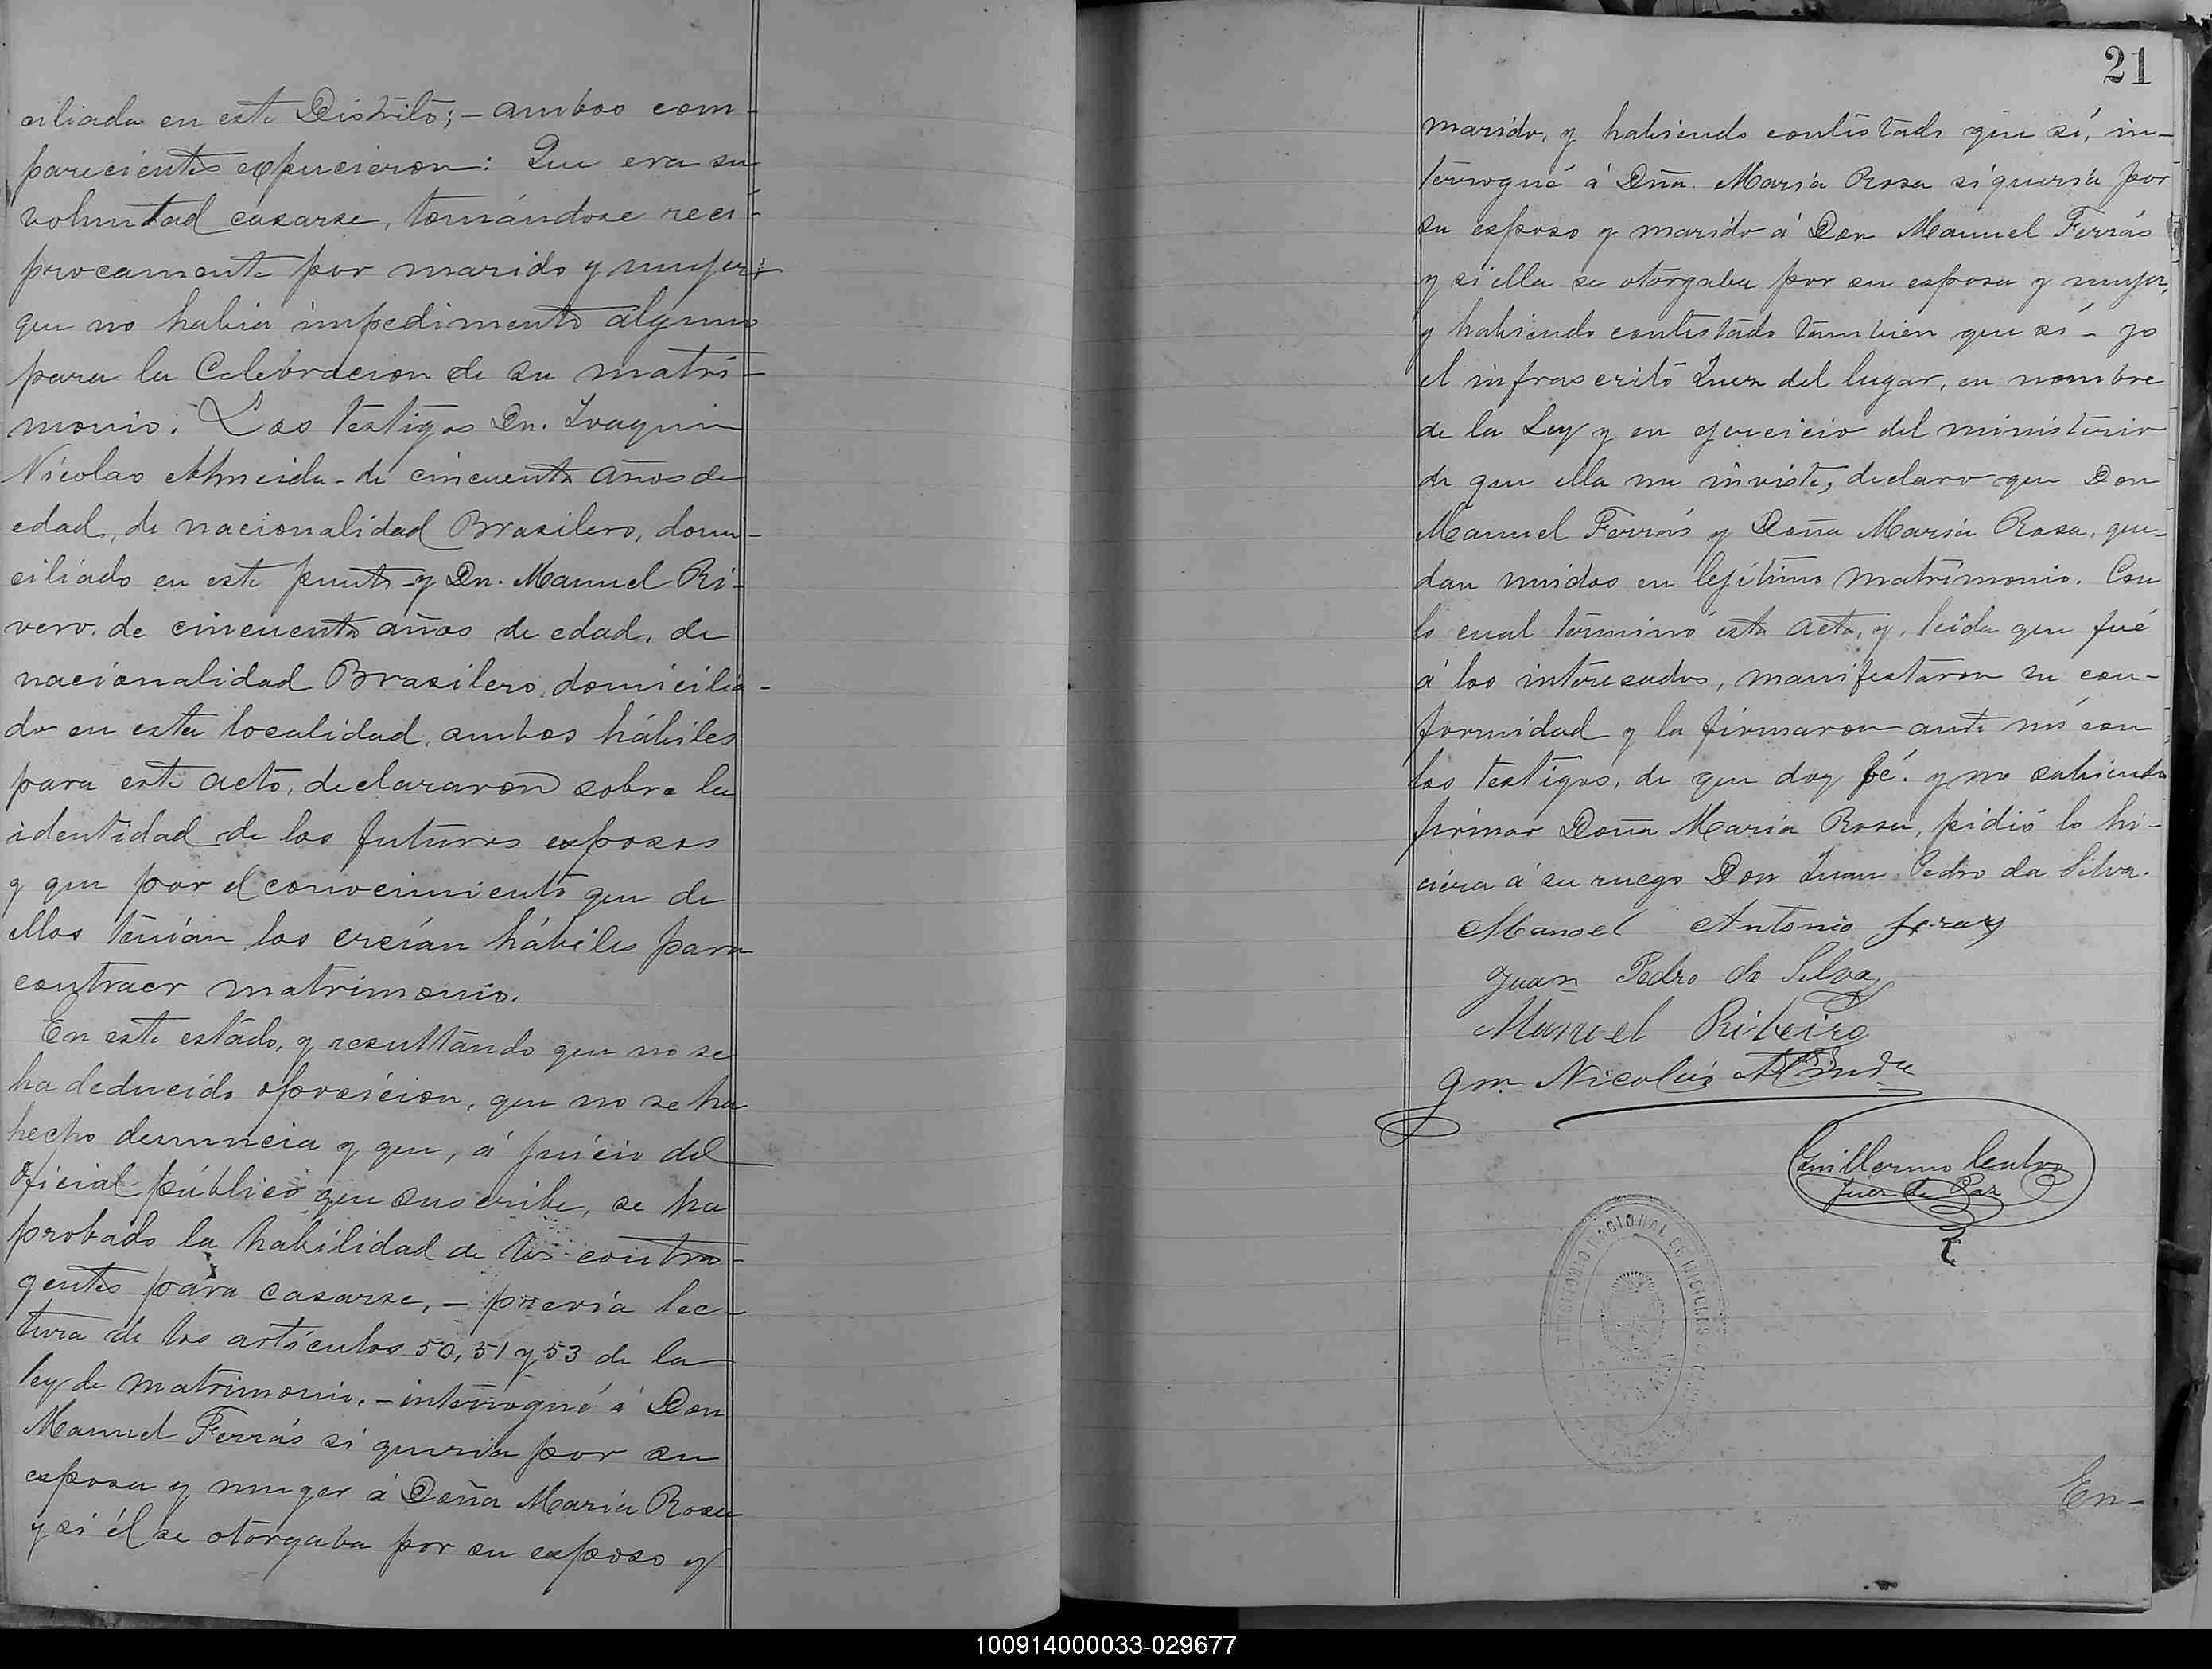 ciliada en este Distrito; – ambos com-
parecientes expucieron: Que era su
voluntad casarse, tomándose reci-
procamente por marido y mujer;
que no habia impedimento alguno
para la Celebracion de su matri-
monio. Los testigos Dn. Joaquin
Nicolao Almeida – de cincuenta años de
edad, de nacionalidad Brasilero, domi-
ciliado en este punto – y Dn. Manuel Ri-
vero, de cincuenta años de edad, de
nacionalidad Brasilero, domicilia-
do en esta localidad, ambos hábiles
para este acto, declararon sobre la
identidad de los futuros esposos
y que por el conocimiento que de
ellos tenían, los creían hábiles para
contraer matrimonio.
En este estado, y resultando que no se
ha deducido oposicion, que no se ha
hecho denuncia y que, á juicio del
Oficial público que suscribe, se ha
probado la habilidad de los contra-
yentes para casarse, – previa lec-
tura de los artículos 50, 51 y 53 de la
ley de matrimonio, – interrogué á Don
Manuel Ferrás si queria por su
esposa y muger á Doña Maria Rosa
y si él se otorgaba por su esposo y
21
marido, y habiendo contestado que sí, in-
terrogué á Dña. Maria Rosa si queria por
su esposo y marido á Don Manuel Ferrás
y si ella se otorgaba por su esposa y mujer,
y habiendo contestado tambien que sí – yo
el infrascrito Juez del lugar, en nombre
de la Ley y en ejercicio del ministerio
de que ella me inviste, declaro que Don
Manuel Ferrás y Doña Maria Rosa, que-
dan unidos en lejítimo matrimonio. Con
lo cual terminó esta acta, y, leida que fué
á los interesados, manifestaron su con-
formidad y la firmaron ante mí con
los testigos, de que doy fé. y no sabiendo
firmar Doña Maria Rosa, pidió lo hi-
ciera á su ruego Don Juan Pedro da Silva.
Manoel Antonio feraz
Juan Pedro da Silva
Manoel Ribeiro
Jm Nicolás Almeida
Guillermo
Juez de Paz
TERRITORIO NACIONAL DE MISIONES
En-
100914000033-029677